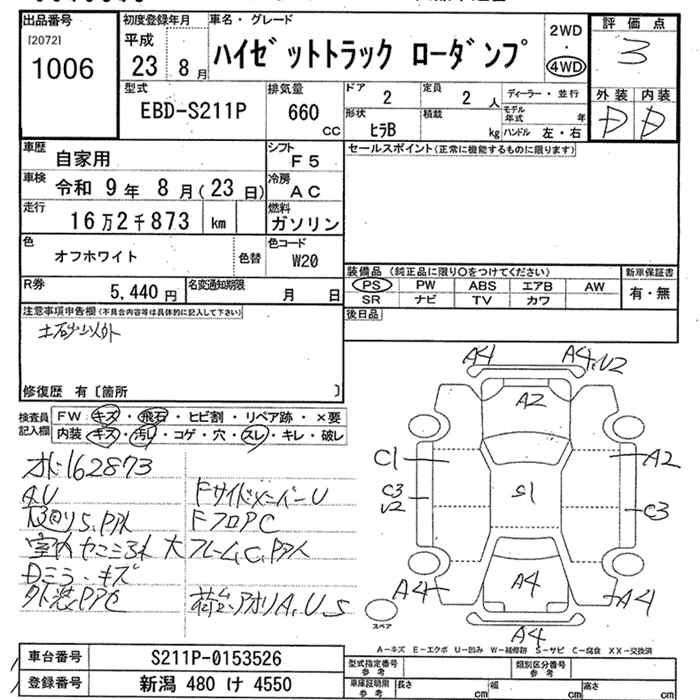 出品番号
[2072]
1006
初度登録年月
平成
23 8 月
車名・グレード
ハイゼットトラック ローダンプ
2WD
・
4WD
評価点
3
型式
EBD-S211P
排気量
660
CC
ドア
2
定員
2 人
ディーラー・並行
モデル年式 年
形状
ヒラB
積載
kg
ハンドル 左・右
外装 内装
D D
車歴
自家用
シフト
F5
セールスポイント(正常に機能するものに限ります)
車検
令和 9 年 8 月 (23 日)
冷房
AC
走行
16万2千873 km
燃料
ガソリン
色
オフホワイト
色替
色コード
W20
装備品 (純正品に限り○をつけてください)
新車保証書
PS PW ABS エアB AW
SR ナビ TV カワ
有・無
R券
5,440 円
名変通知期限
月 日
後日品
注意事項申告欄(不具合内容等は具体的に記入して下さい)
土砂以外
修復歴 有〔箇所 〕
検査員
記入欄
FW キズ・飛石・ヒビ割・リペア跡・×要
内装 キズ・汚れ・コゲ・穴・スレ・キレ・破レ
オド162873
A.U
FサイドメンバーU
FフロアC
A4 A4.U2
A2
C1 A2
C3
U2
S1
C3
A4 A4 A4
A4
スペア
A-キズ E-エクボ U-凹み W-補修跡 S-サビ C-腐食 XX-交換済
車台番号
S211P-0153526
登録番号
新潟 480 け 4550
型式指定番号
参考
類別区分番号
参考
車庫証明用
参考
長さ cm
幅 cm
高さ cm